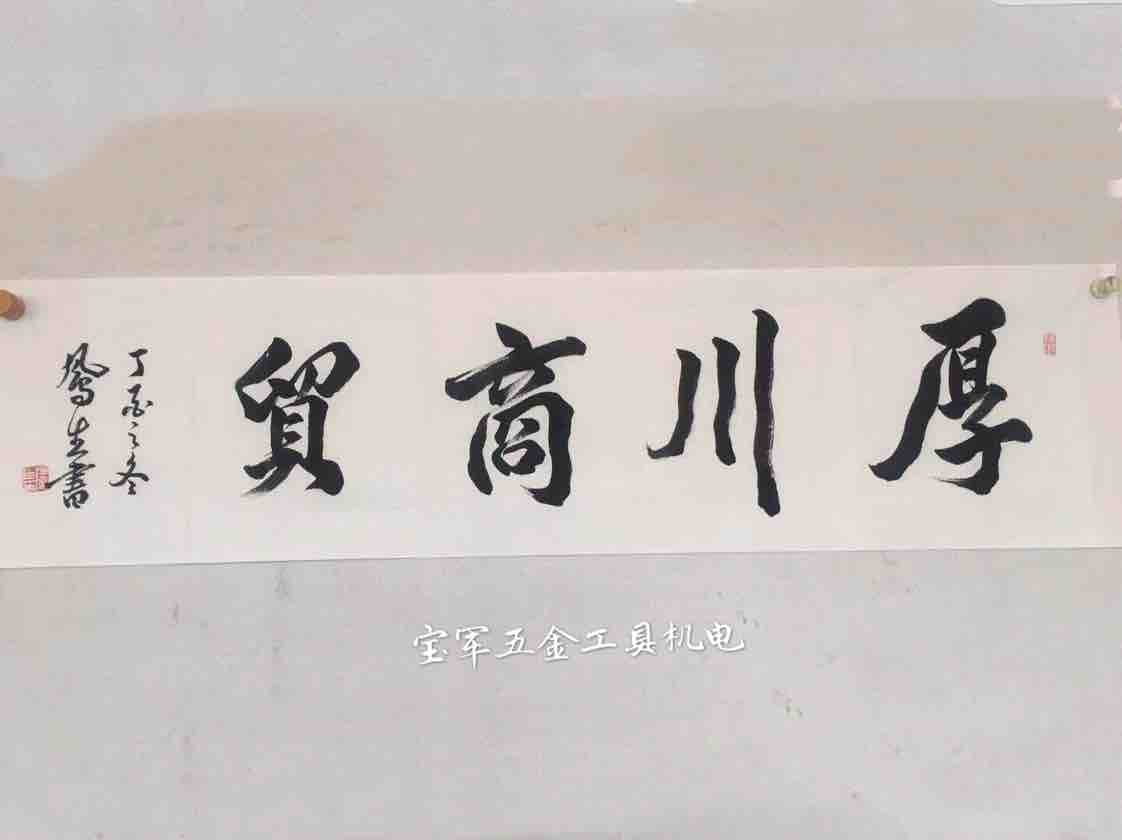 厚川商貿
丁酉之冬
鳳生書
宝军五金工具机电